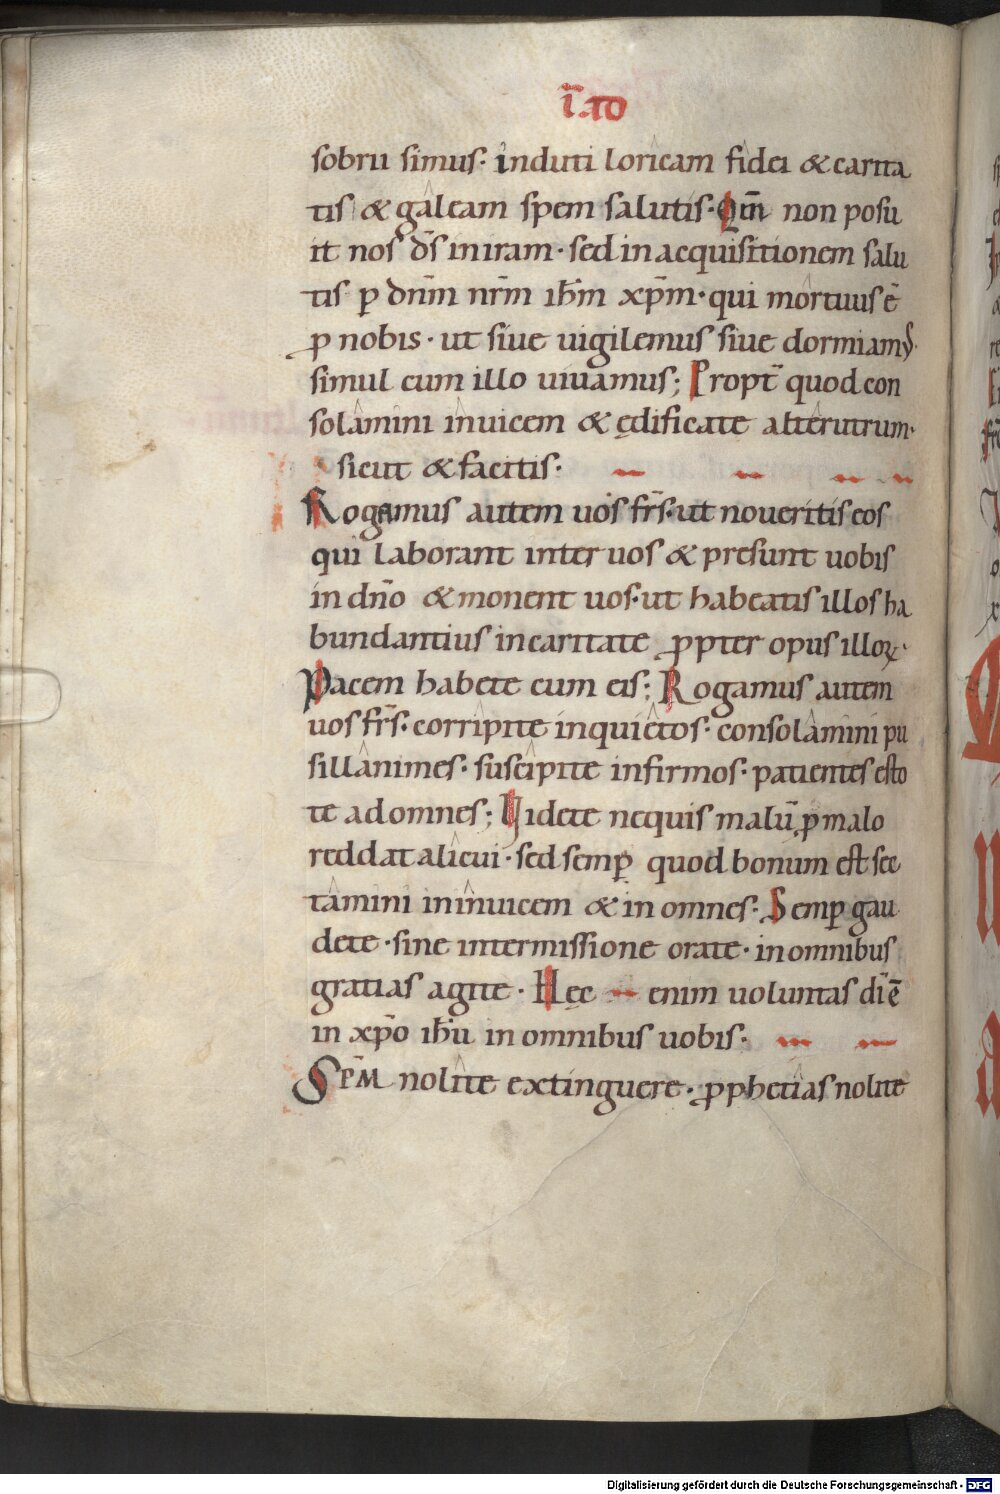 ī. ad
sobrii simus· induti loricam fidei & carita
tis & galeam spem salutis· Qm̄ non posu
it nos d̄s in iram· sed in acquisitionem salu
tis ꝑ dn̄m nr̄m ih̄m xp̄m· qui mortuus ē
ꝓ nobis· ut siue uigilemus siue dormiam᾽·
simul cum illo uiuamus; Propt̄ quod con
solamini inuicem & ędificate alterutrum·
sicut & facitis·
Rogamus autem uos fr̄s· ut noueritis eos
qui laborant inter uos & presunt uobis
in dn̄o & monent uos· ut habeatis illos ha
bundantius in caritate ꝓpter opus illoꝝ·
Pacem habete cum eis; Rogamus autem
uos fr̄s· corripite inquietos· consolamini pu
sillanimes· suscipite infirmos· patientes esto
te ad omnes; Uidete nequis malū ꝓ malo
reddat alicui· sed semꝑ quod bonum est sec
tamini in inuicem & in omnes· Semꝑ gau
dete· sine intermissione orate· in omnibus
gratias agite· Hęc enim uoluntas dī ē
in xp̄o ih̄u in omnibus uobis·
SPM̄ nolite extinguere· ꝓphetias nolite
Digitalisierung gefördert durch die Deutsche Forschungsgemeinschaft - DFG